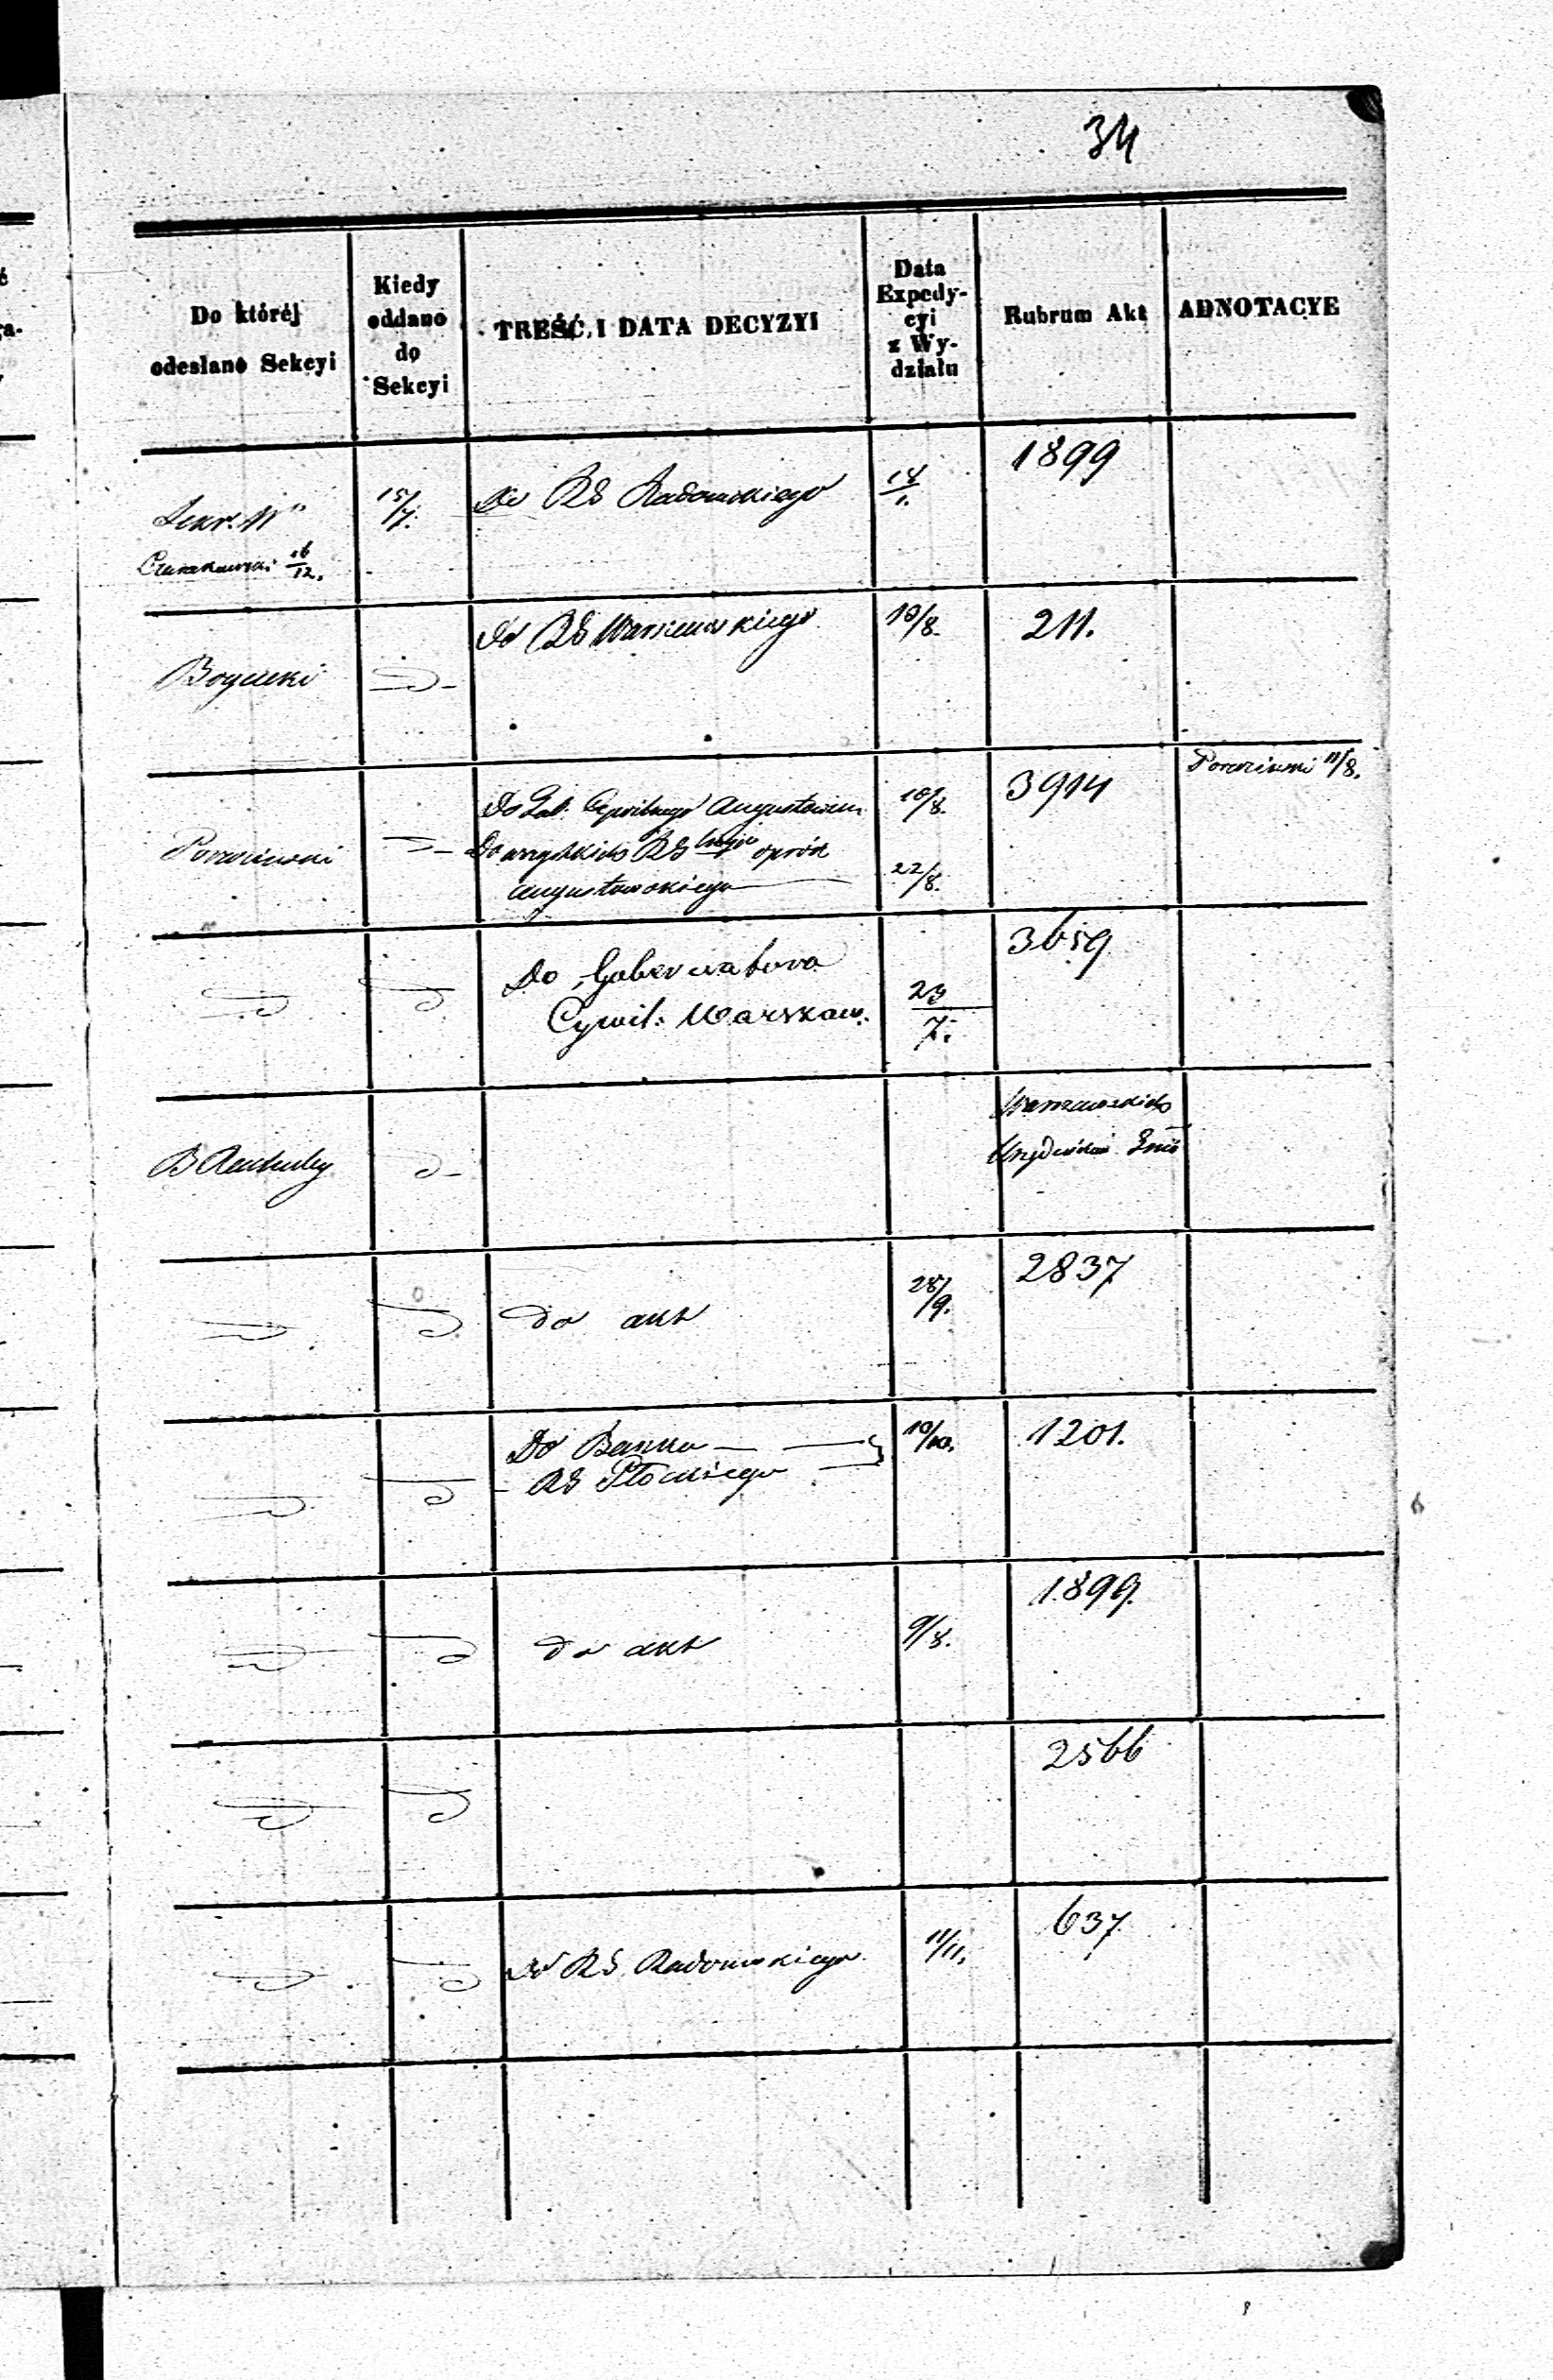 34
Do któréj
odesłano Sekcyi
Kiedy
oddano
do
Sekcyi
TREŚĆ I DATA DECYZYI
Data
Expedy-
cyi
z Wy-
działu
Rubrum Akt
ADNOTACYE
Sekr. Wu
16/12.
15/7.
Do RG Radomskiego
1899
Do RG Warszawskiego
10/8.
211.
Do Gub. Cywilnego Augustowsk
Do wszystkich RG oprócz
Augustowskiego
10/8.
22/8.
3914
11/8.
Do Gubernatora
Cywil: Warszaw.
23/7.
3659
Warszawskich
2837
do akt
28/9.
Do Banku
RG Płockiego
10/10.
1201.
do akt
9/8.
1899.
2566
Do RG Radomskiego
11/11.
637